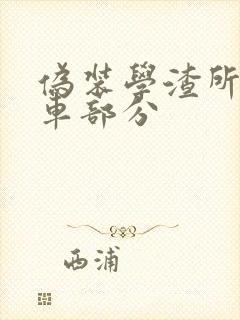 偽裝學渣所
車部分
西浦